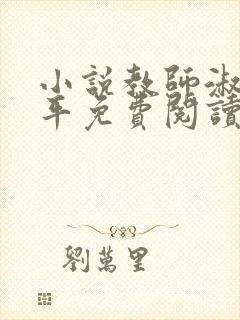 小說教師淑
年免費閱讀
劉萬里